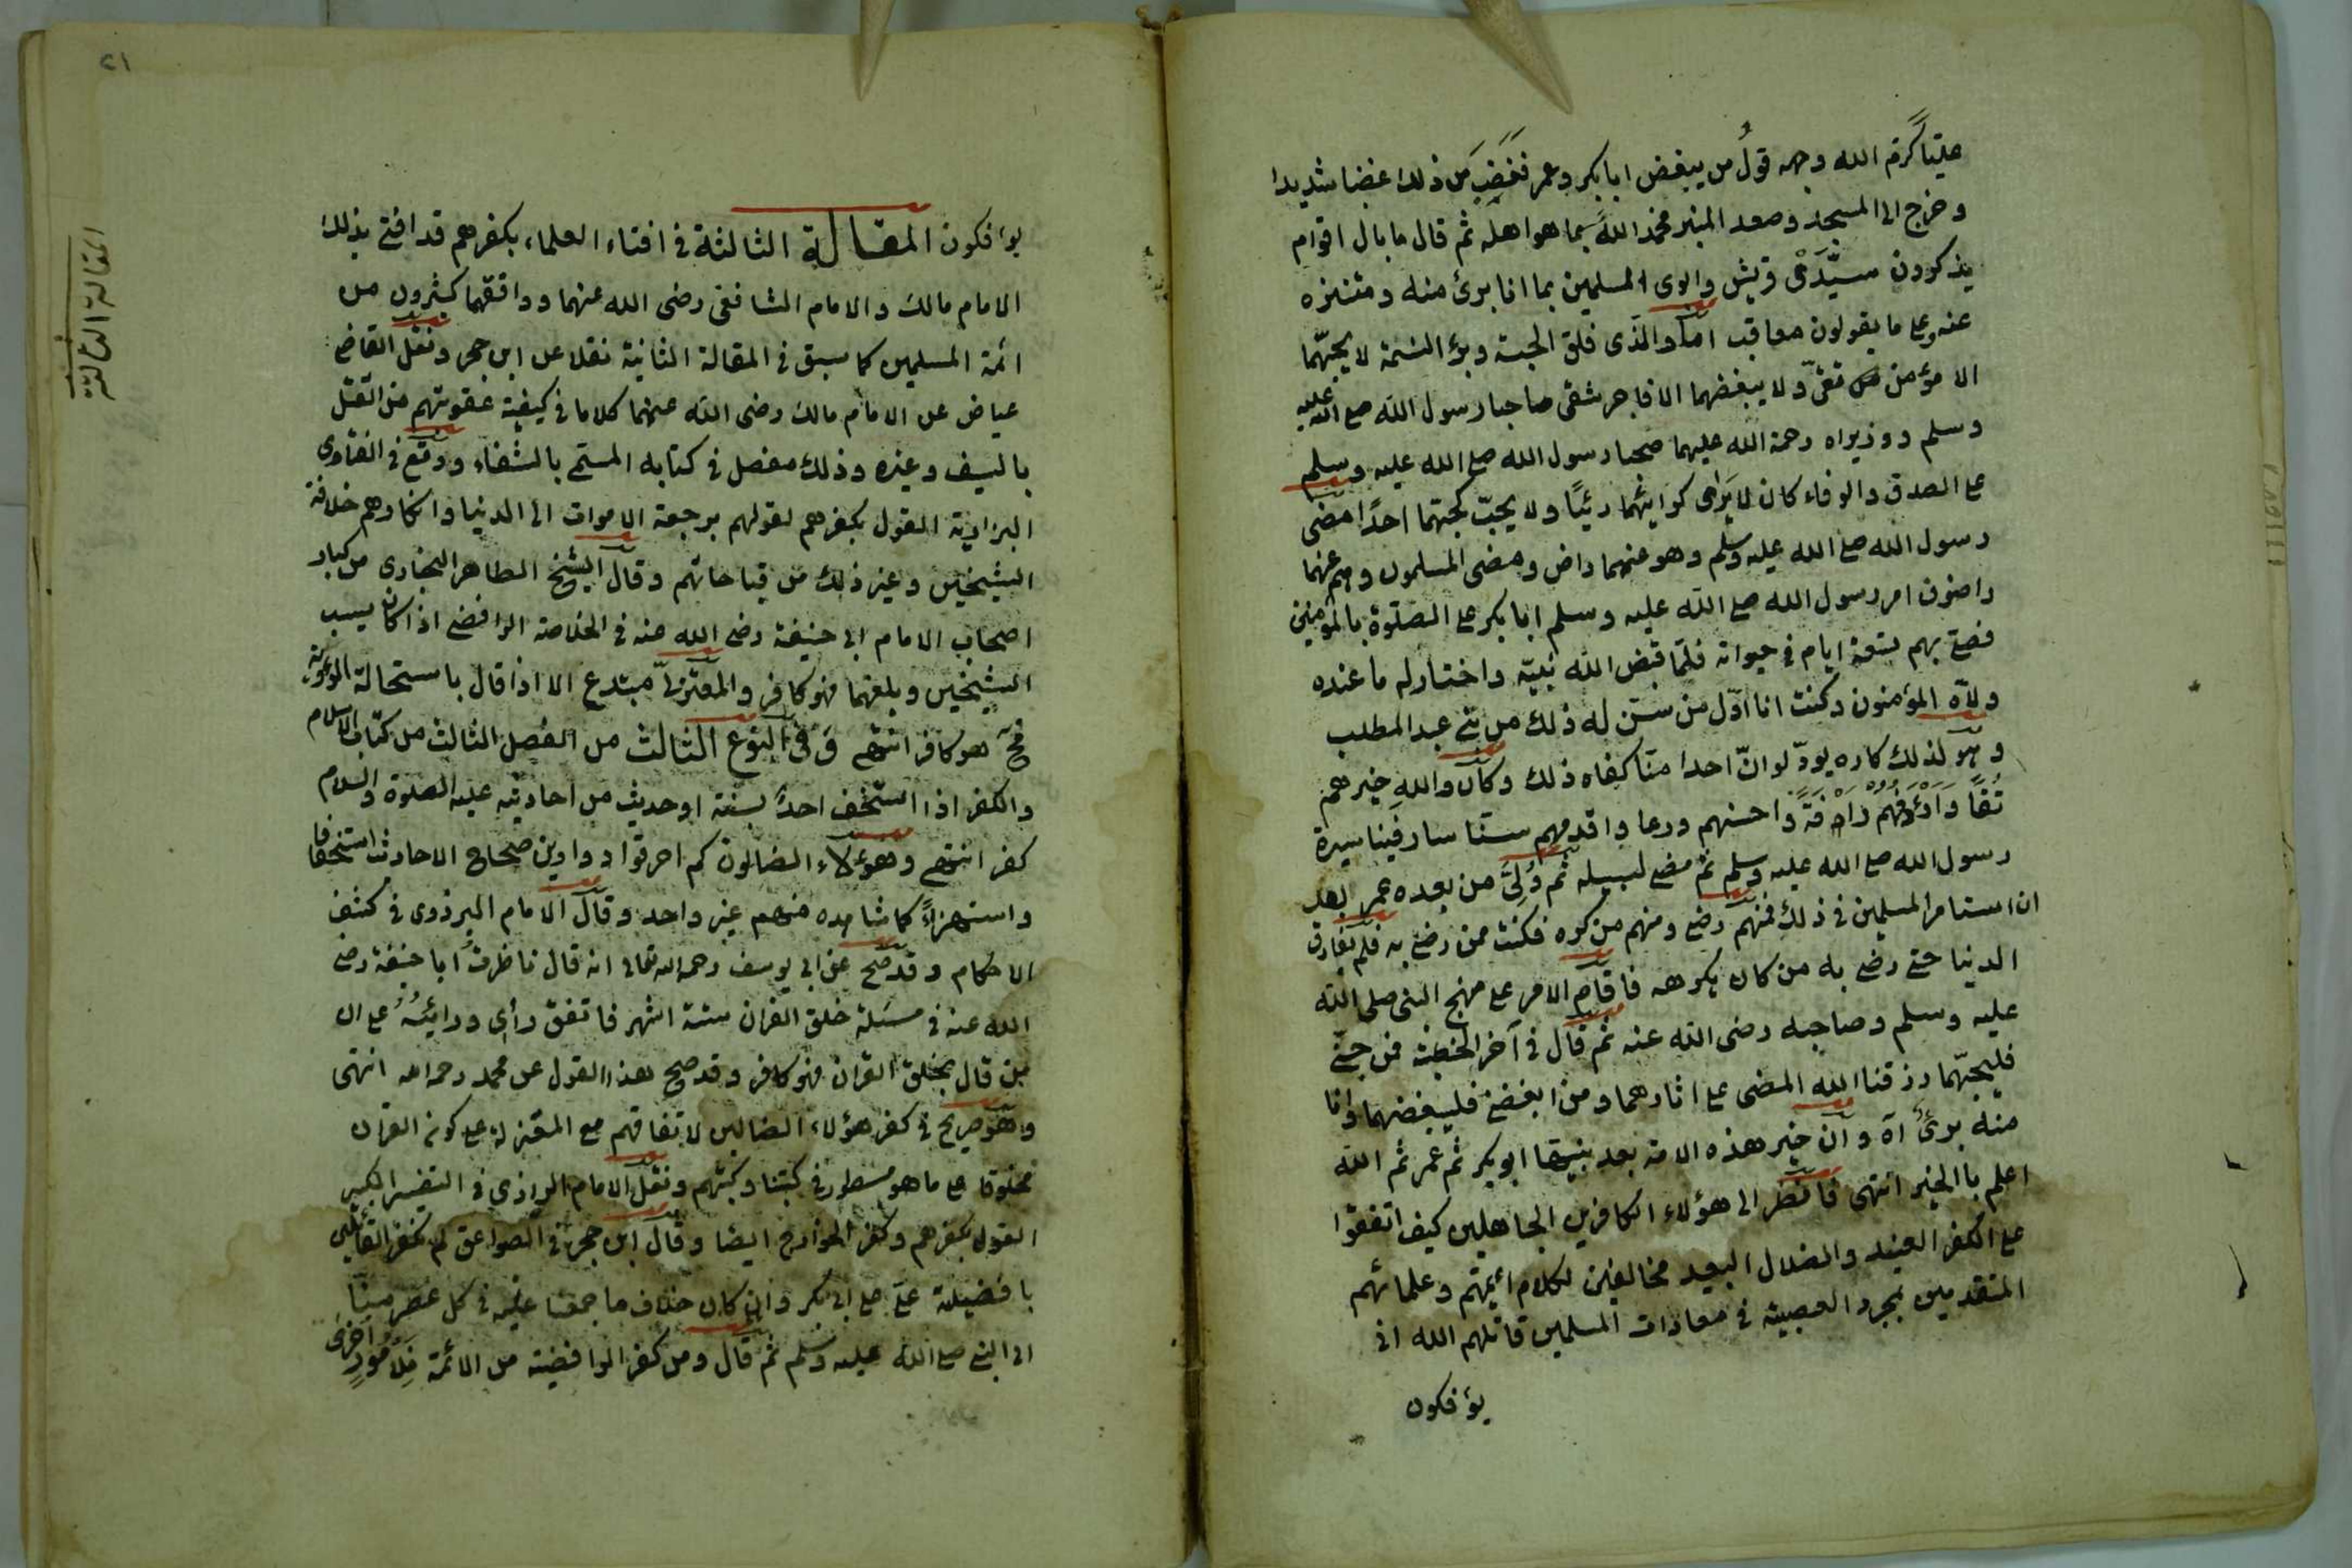 عليّاً كرّم الله وجهه قولُ من يبغض ابابكر وعمر فغَضِبَ من ذلك غضبا شديدا
وخرج الى المسجد وصعد المنبر فحمد اللهَ بما هو اهله ثم قال ما بال اقوام
يذكرون سيّدَىْ قريش وابوى المسلمين بما انا برئ منه ومتنزه
عنه وعلى ما يقولون معاقب اما والذى فلق الحبة وبرؤ النسمة لا يحبّهما
الا مؤمن تقىّ ولا يبغضهما الا فاجر شقى صاحبا رسول الله صلع الله عليه
وسلم ووزيراه رحمة الله عليهما صحبا رسول الله صلع الله عليه وسلم
على الصدق والوفاء كان لا يَرَاى كرايئهما رئيًا ولا يحبّ كحبّهما احدًا مضى
رسول الله صلع الله عليه وسلم وهو عنهما راض ومضى المسلمون وهم عنهما
راضون امر رسول الله صلع الله عليه وسلم ابابكر على الصّلوة بالمؤمنين
فصلى بهم تسعة ايام فى حيواته فلمّا قبض الله نبيّه واختار له ما عنده
ولاّه المؤمنون وكنت انا اوّل من سنّ له ذلك من بنى عبد المطلب
وهو لذلك كاره يودّ لو انّ احدا منّا كفاه ذلك وكان والله خيرهم
تُقًا وَاَرْئَفُهُم رَاْفَةً واحسنهم ورعا واقدمهم سنّا سار فينا سيرة
رسول الله صلع الله عليه وسلم ثم مضى لسبيله ثم وُلِىَّ من بعده عمر بعد
ان استامر المسلمين فى ذلك فمنهم رضى ومنهم من كره فكنت ممن رضى به فلم يفارق
الدنيا حتى رضى به من كان يكرهه فاقام الامر على منهج النبى صلى الله
عليه وسلم وصاحبه رضى الله عنه ثم قال فى آخر الخطبة فمن حبّنى
فليحبّهما رزقنا الله المضى على اثارهما ومن ابغضنى فليبغضهما وانا
منه برئٌ آه وان خير هذه الامة بعد نبيّها ابو بكر ثم عمر ثم الله
اعلم بالخير انتهى فانظر الى هؤلاء الكافرين الجاهلين كيف اتفقوا
على الكفر العنيد والضلال البعيد مخالفين لكلام ايمتهم وعلمائهم
المتقدمين بمجرد العصبية فى معادات المسلمين قاتلهم الله انى
يؤفكون
٢١
المقالة الثالثة
يؤفكون المقالة الثالثة فى افتاء العلماء بكفرهم قد افتى بذلك
الامام مالك والامام الشافعى رضى الله عنهما ووافقهما كثرون من
ائمة المسلمين كما سبق فى المقالة الثانية نقلا عن ابن حجر ونقل القاضى
عياض عن الامام مالك رضى الله عنهما كلاما فى كيفية عقوبتهم من القتل
بالسيف وغيره وذلك مفصل فى كتابه المسمى بالشفاء ووقع فى الفتاوى
البزازية القول بكفرهم لقولهم برجعة الاموات الى الدنيا وانكارهم خلافة
الشيخين وغير ذلك من قباحاتهم وقال الشيخ الطاهر البخارى من كبار
اصحاب الامام ابى حنيفة رضى الله عنه فى الخلاصة الرافضى اذا كان يسب
الشيخين ويلعنهما فهو كافر والمعتزلىّ مبتدع الا اذا قال باستحالة الرؤية
فح هو كافر انتهى وفى النوع الثالث من الفصل الثالث من كتاب الاسلام
والكفر اذا استخف احدٌ بسنة او حديث من احاديثه عليه الصلوة والسلام
كفر انتهى وهؤلاء الضالون كم احرقوا دواوين صحاح الاحاديث استخفافا
واستهزاءً كما شاهده منهم غير واحد وقال الامام البزدوى فى كشف
الاحكام وقد صح عن ابى يوسف رحمه الله تعالى انه قال ناظرتُ ابا حنيفة رضى
الله عنه فى مسئلة خلق القران ستة اشهر فاتفق رأى ورائيُهُ على ان
من قال بخلق القران فهو كافر وقد صح هذا القول عن محمد رحمه الله انتهى
وهو صريح فى كفر هؤلاء الضالين لاتفاقهم مع المعتزلة على كون القران
مخلوقا على ما هو مسطور فى كتبنا وكبتهم ونقل الامام الرازى فى التفسير الكبير
القول بكفرهم وكفر الخوارج ايضا وقال ابن حجر فى الصواعق لم نكفر القائلين
بافضيلة علىّ على ابى بكر وان كان خلاف ما جمعنا عليه فى كل عصر مينّا
الى النبى صلع الله عليه وسلم ثم قال ومن كفر الرافضية من الائمة فَلِاُمُورٍ اخرى